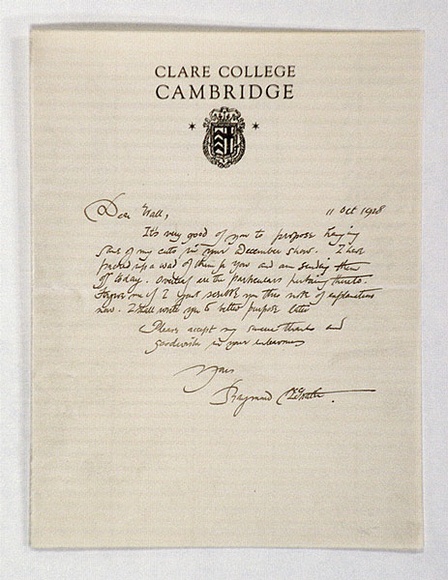 CLARE COLLEGE
CAMBRIDGE
Dear Wall,
11 Oct 1928
It's very good of you to propose
some of my cuts in your December show. I have
packed up a wad of them to you and am sending them
off today. are the particulars
Forgive me if I just scribble you this note of explanation
now. I shall write you to better purpose later
Please accept my sincere thanks and
goodwishes in your
Yours
Raymond McGrath.